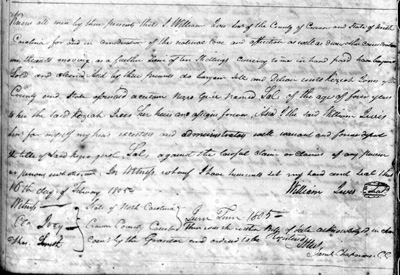 Know all men by these presents that I William Lewis Senr of the County of Craven and State of North
Carolina for and in consideration of the natural love and affection as well as divers other considerations
me thereunto moving as a further sum of ten shillings Currency to me in hand paid have bargained
sold and delivered And by these presents do bargain sell and deliver unto Keziah Lewis
County and State aforesaid a certain Negro Girl named Sal of the age of four years
to her the said Keziah Lewis her heirs and assigns forever, And I the said William Lewis
Senr for myself my heirs executors and administrators will warrant and forever defend
the title of said Negro girl, Sal, against the lawful claim or claims of any person
or persons whatsoever. In witness whereof I have hereunto set my hand and seal this
16th day of February 1805
William Lewis Seal
Witness
State of North Carolina
Craven County
June Term 1805
Then was the within Bill of Sale acknowledged in open
Court by the Grantor and ordered to be registered
Attest
Saml Chapman CC